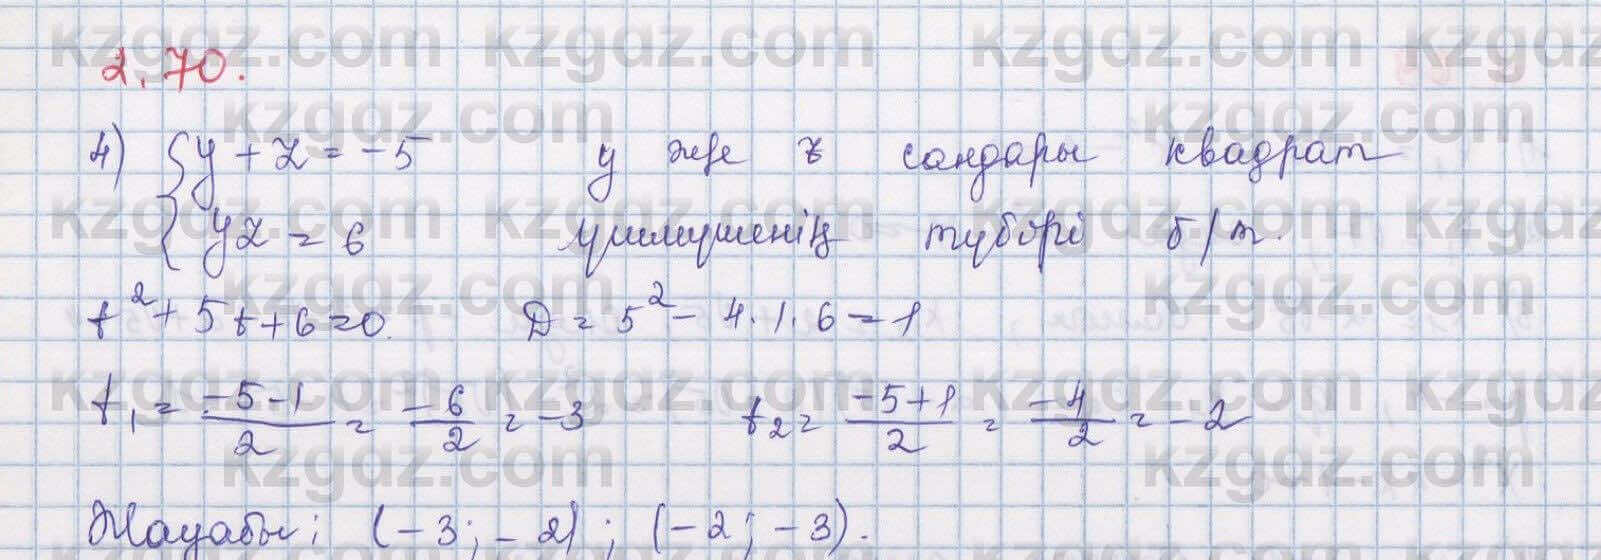 2.70.
4) { y + z = -5 у және z сандары квадрат
yz = 6 үшмүшенің түбірі б/т.
t² + 5t + 6 = 0. D = 5² - 4·1·6 = 1
t₁ = (-5-1)/2 = -6/2 = -3 t₂ = (-5+1)/2 = -4/2 = -2
Жауабы: (-3; -2); (-2; -3).
kzgdz.com